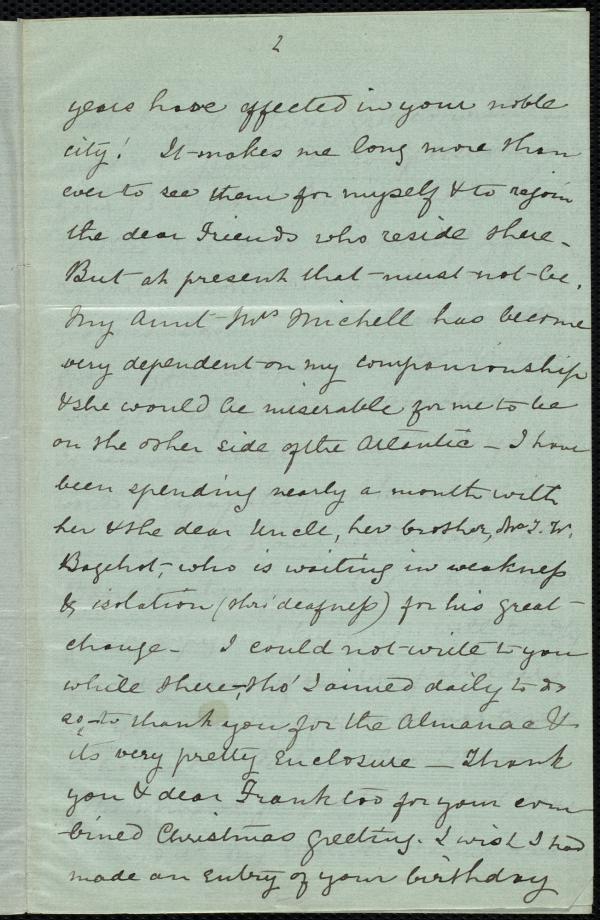 2
years have effected in your noble
city! It makes me long more than
ever to see them for myself & to rejoin
the dear Friends who reside there -
But at present that must not be.
My Aunt Mrs Michell has become
very dependent on my companionship
& she would be miserable for me to be
on the other side of the Atlantic - I have
been spending nearly a month with
her & the dear Uncle, her brother, Mr T. W.
Bagehot, who is waiting in weakness
& isolation (thro' deafness) for his great
change - I could not write to you
while there, tho' I aimed daily to do
so, to thank you for the Almanac &
its very pretty enclosure - Thank
you & dear Frank too for your com-
bined Christmas greeting. I wish I had
made an entry of your birthday